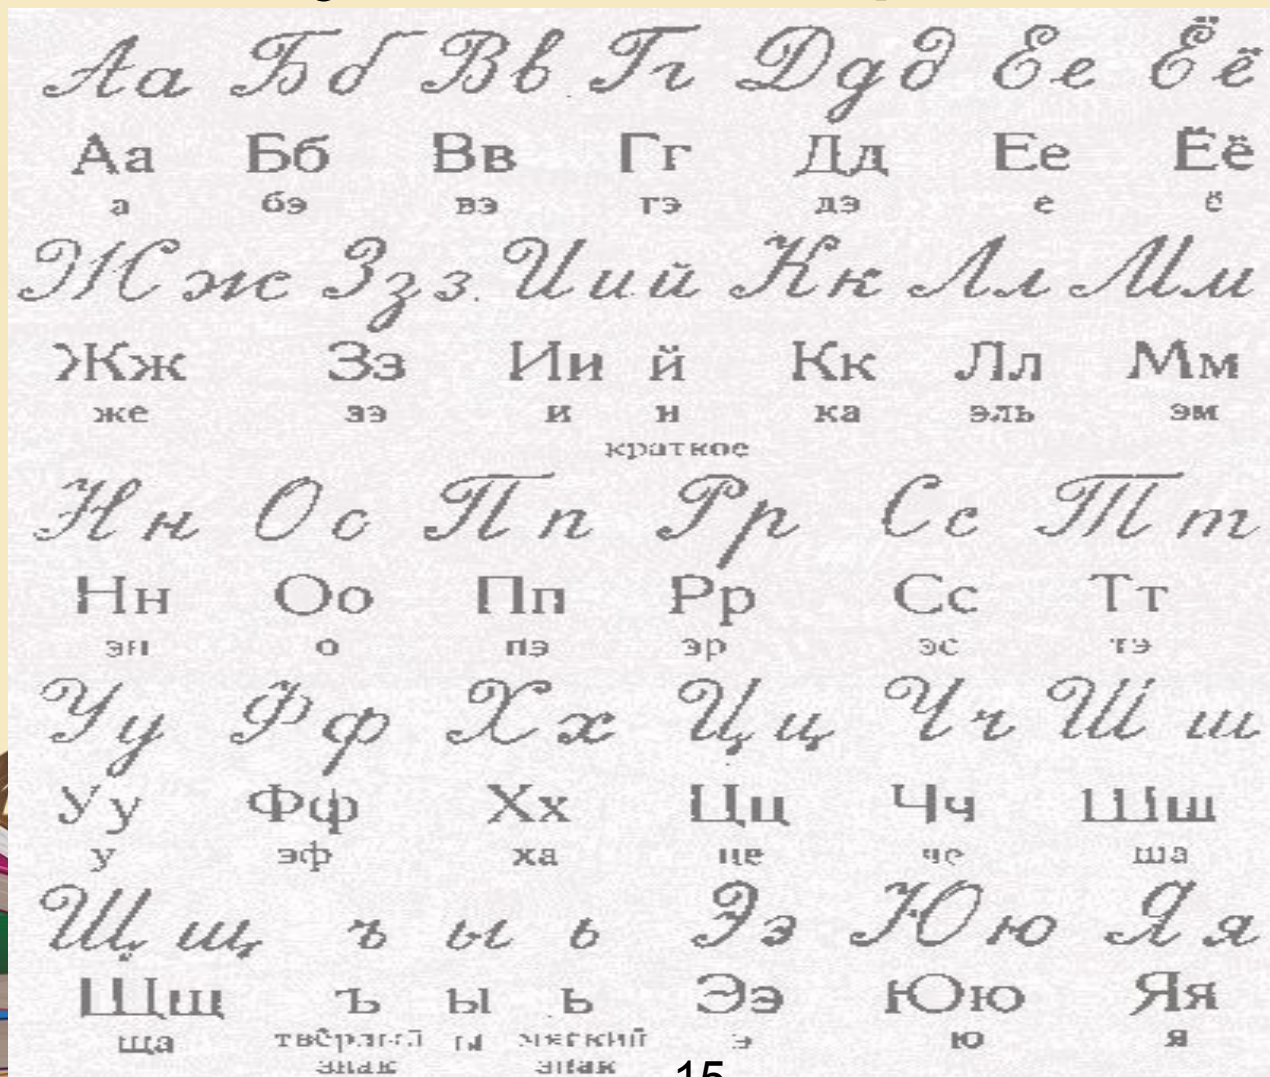 Аа Бб Вв Гг Ддд Ее Ёё
Аа Бб Вв Гг Дд Ее Ёё
а бэ вэ гэ дэ е ё
Жж Ззз Ии й Кк Лл Мм
Жж Зз Ии й Кк Лл Мм
же зэ и и ка эль эм
краткое
Нн Оо Пп Рр Сс Тт
Нн Оо Пп Рр Сс Тт
эн о пэ эр эс тэ
Уу Фф Хх Цц Чч Шш
Уу Фф Хх Цц Чч Шш
у эф ха це че ша
Щщ ъ ы ь Ээ Юю Яя
Щщ ъ ы ь Ээ Юю Яя
ща твёрдый ы мягкий э ю я
знак знак
15